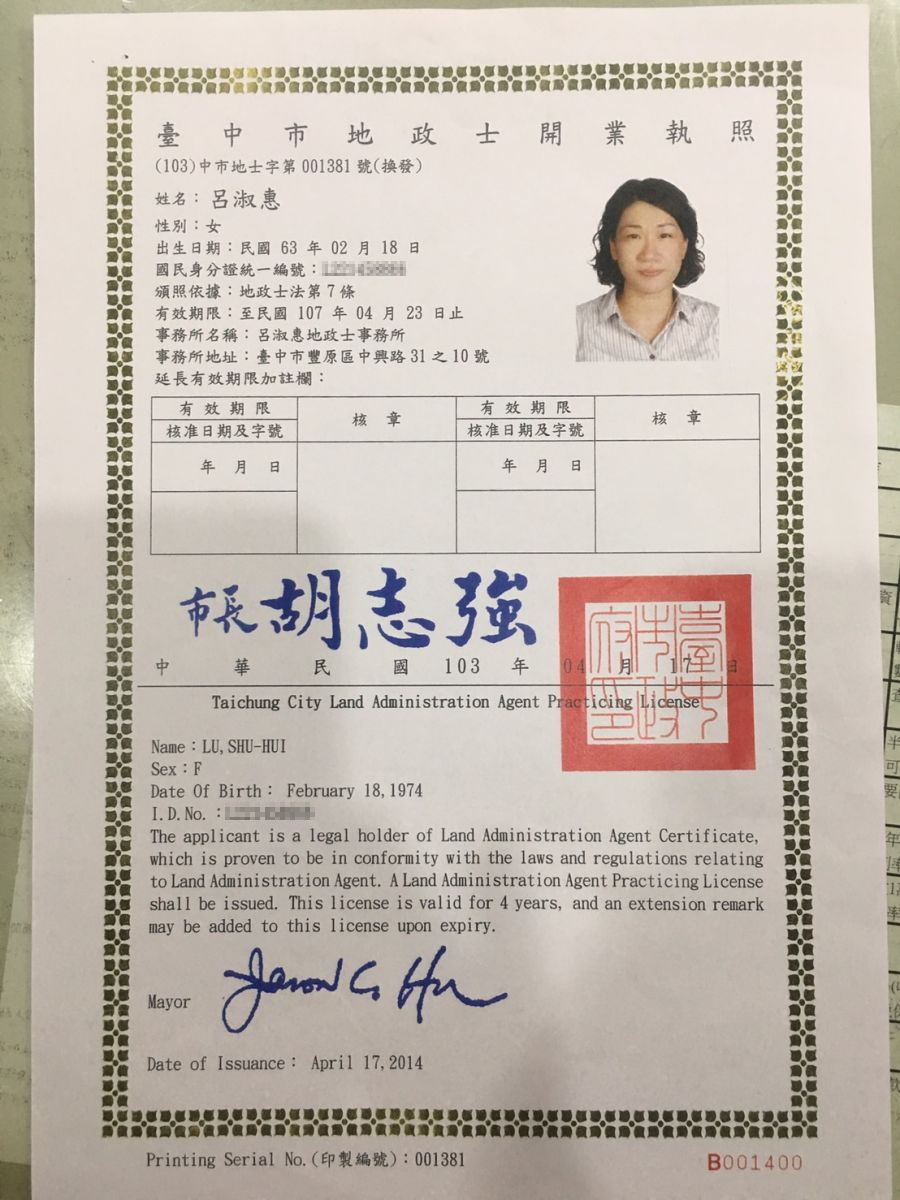 臺中市地政士開業執照
(103)中市地士字第001381號(換發)
姓名：呂淑惠
性別：女
出生日期：民國 63 年 02 月 18 日
國民身分證統一編號：
頒照依據：地政士法第7條
有效期限：至民國 107 年 04 月 23 日止
事務所名稱：呂淑惠地政士事務所
事務所地址：臺中市豐原區中興路31之10號
延長有效期限加註欄：
有效期限 核章 有效期限 核章
核准日期及字號 核准日期及字號
年 月 日 年 月 日
市長 胡志強
中華民國 103 年 04 月 17 日
臺中市政府印
Taichung City Land Administration Agent Practicing License
Name：LU,SHU-HUI
Sex：F
Date Of Birth： February 18,1974
I.D.No.：
The applicant is a legal holder of Land Administration Agent Certificate,
which is proven to be in conformity with the laws and regulations relating
to Land Administration Agent. A Land Administration Agent Practicing License
shall be issued. This license is valid for 4 years, and an extension remark
may be added to this license upon expiry.
Mayor Jason C. Hu
Date of Issuance： April 17,2014
Printing Serial No.(印製編號)：001381
B001400